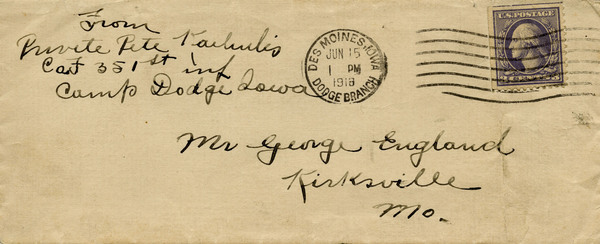 From
Privite Pete
Co 351st inf
Camp Dodge Iowa
DES MOINES, IOWA
JUN 15
1 PM
1918
DODGE BRANCH
U.S. POSTAGE
Mr George England
Kirksville
Mo.